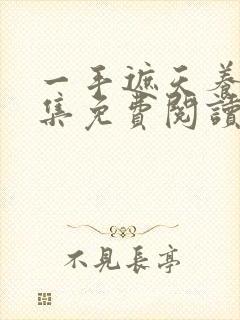 一手遮天養
集免費閱讀
不見長亭